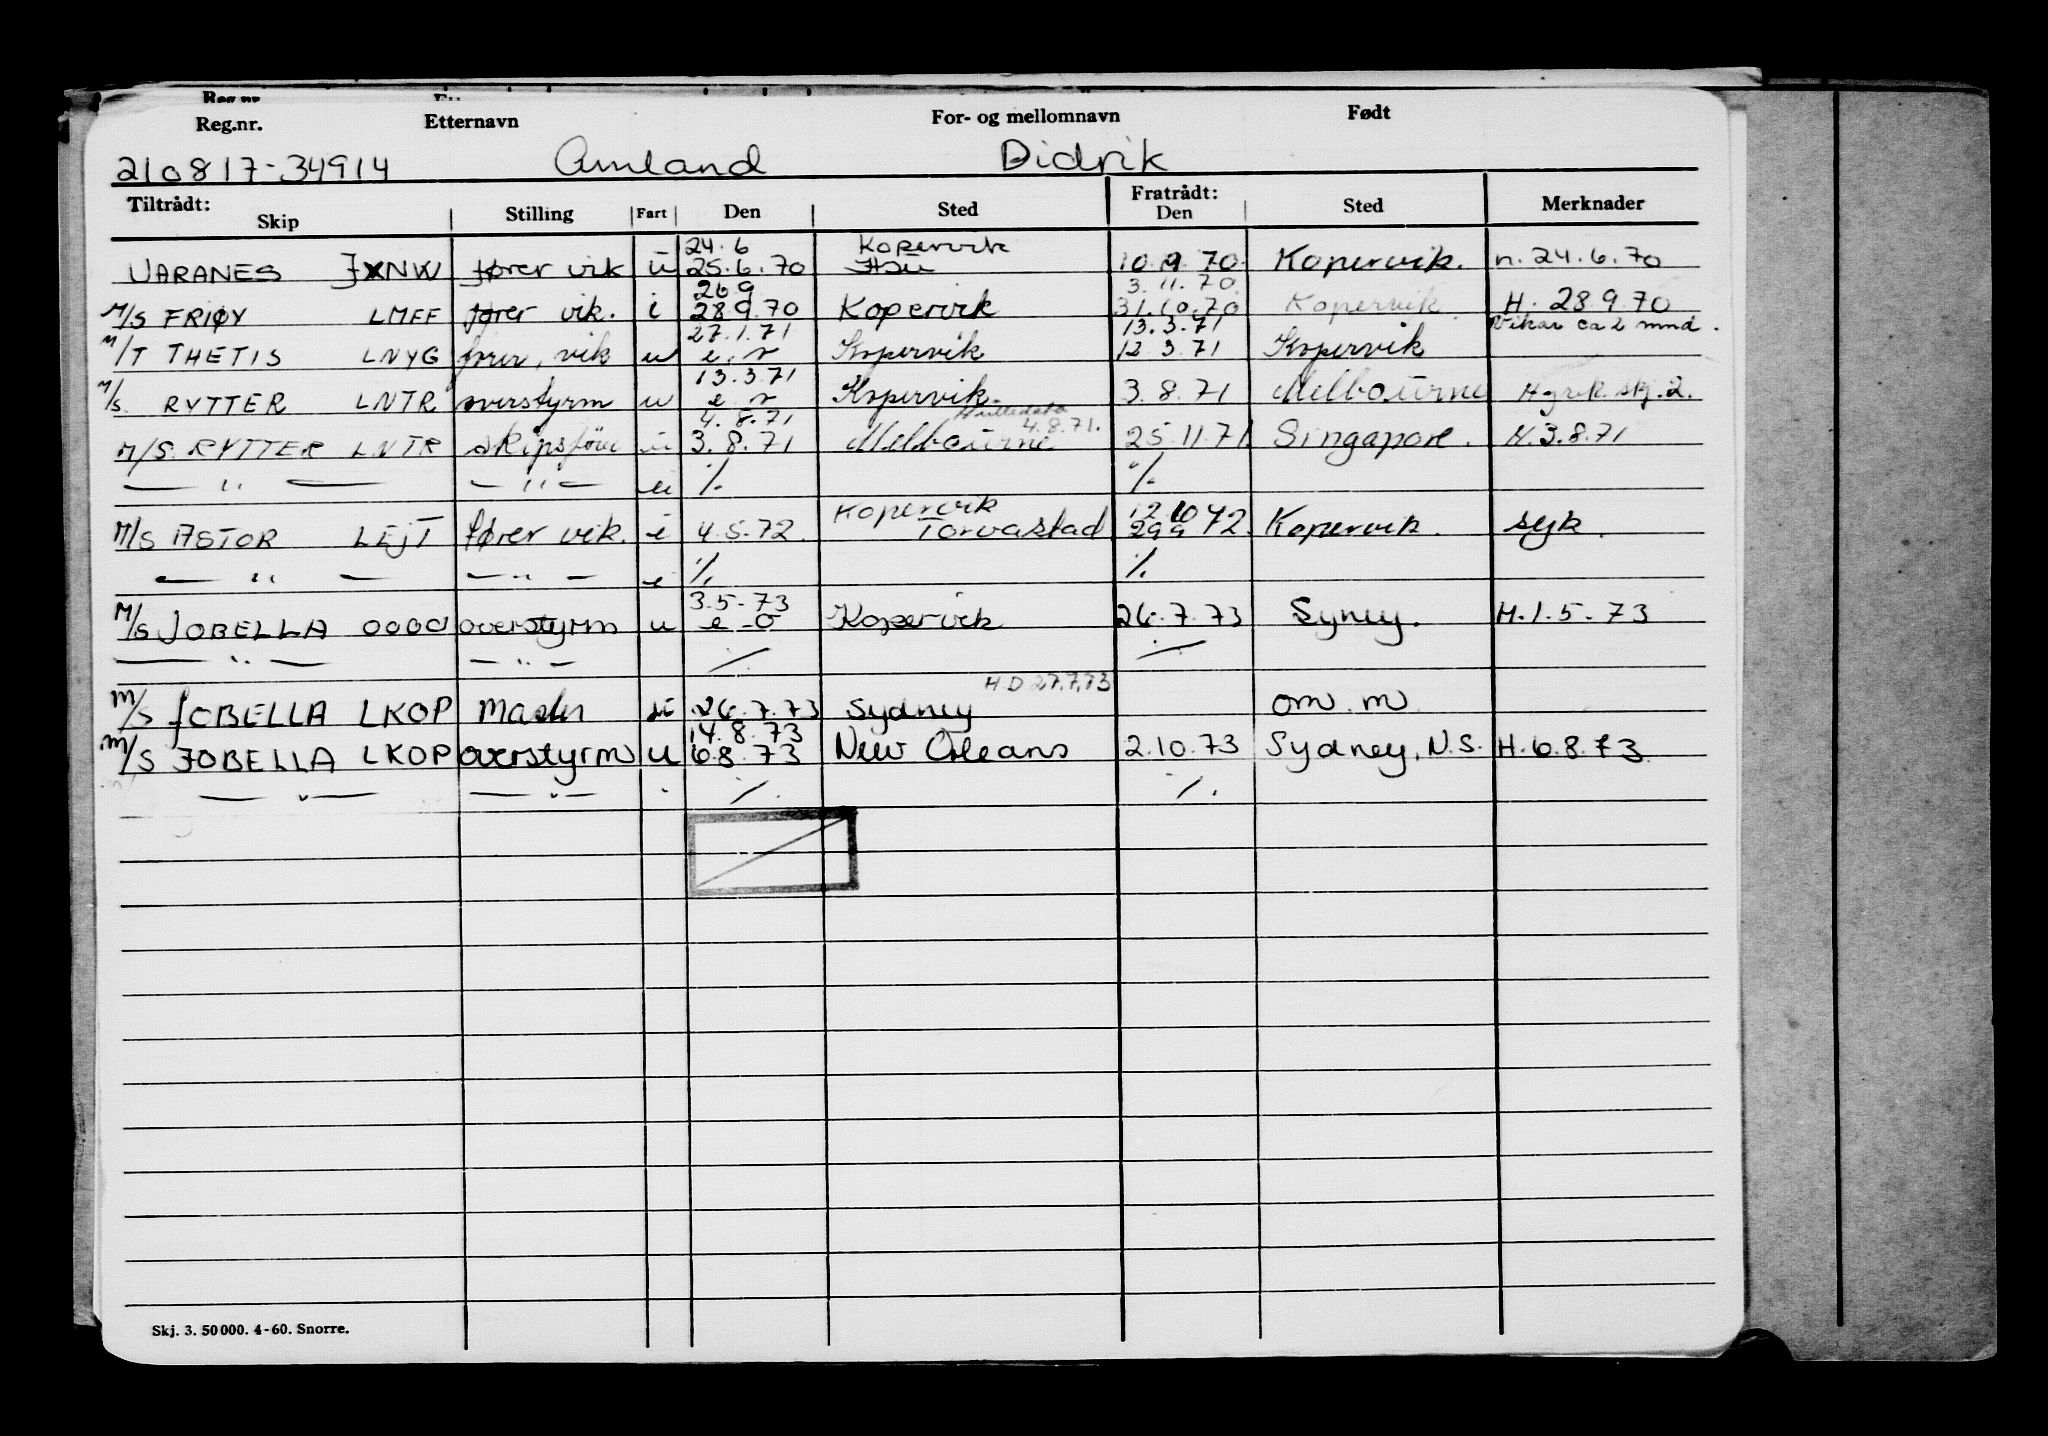 Reg.nr. Etternavn For- og mellomnavn Født
210817-34914 Amland Didrik
Tiltrådt: Fratrådt:
Skip Stilling Fart Den Sted Den Sted Merknader
24.6 Kopervik
VARANES JXNW fører vik u 25.6.70 10.9.70. Kopervik. n. 24.6.70
26.9 3.11.70
M/S FRIØY LMFF fører vik. i 28.9.70 Kopervik 31.10.70 Kopervik. H. 28.9.70
27.1.71 13.3.71 Vikar ca 2 mnd.
M/T THETIS LNYG fører, vik u e.r Kopervik 12.3.71 Kopervik
13.3.71
M/S. RYTTER LNTR overstyrm u e r Kopervik. 3.8.71 Melbourne skj. 2.
4.8.71 4.8.71.
M/S. RYTTER LNTR skipsfører u 3.8.71 Melbourne 25.11.71 Singapore. H. 3.8.71
— " — — " — u ·/. ·/.
Kopervik 12.10
M/S ASTOR LEJT fører vik. i 4.5.72. Torvastad 29.9 72. Kopervik. syk.
— " — — " — i ·/. ·/.
3.5-73
M/S JOBELLA OOOO overstyrm u e-o Kopervik 26.7.73 Syney. H. 1.5-73
— " — — " — ·/. ·/.
H.D 27.7.73
M/S JOBELLA LKOP Master u 26.7.73 Sydney om. m
14.8.73
M/S JOBELLA LKOP overstyrm u 6.8.73 New Orleans 2.10.73 Sydney, N.S. H. 6.8.73
— " — — " — ·/. ·/.
Skj. 3. 50 000. 4-60. Snorre.